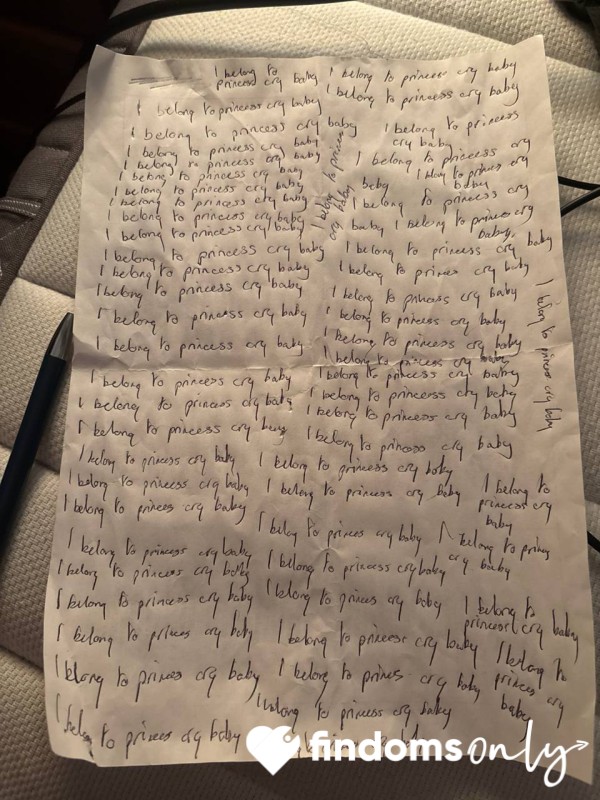 I belong to princess cry baby
I belong to princess cry baby
I belong to princess cry baby
I belong to princess cry baby
I belong to princess cry baby
I belong to princess cry baby
I belong to princess cry baby
I belong to princess cry baby
I belong to princess cry baby
I belong to princess cry baby
I belong to princess cry baby
I belong to princess cry baby
I belong to princess cry baby
I belong to princess cry baby
I belong to princess cry baby
I belong to princess cry baby
I belong to princess cry baby
I belong to princess cry baby
I belong to princess cry baby
I belong to princess cry baby
I belong to princess cry baby
I belong to princess cry baby
I belong to princess cry baby
I belong to princess cry baby
I belong to princess cry baby
I belong to princes cry baby
I belong to princess cry baby
I belong to princes cry baby
I belong to princess cry baby
I belong to princess cry baby
I belong to princess
cry baby
I belong to princess cry
baby
I belong to princes cry
baby
I belong to princess cry
baby
I belong to princess cry
baby
I belong to princess cry baby
I belong to princes cry baby
I belong to princess cry baby
I belong to princess cry baby
I belong to princess cry baby
I belong to princess cry
I belong to princess cry baby
I belong to princess cry baby
I belong to princess cry baby
I belong to princess cry baby
I belong to princess cry baby
I belong to princess cry baby
I belong to princess cry baby
I belong to
princess cry
baby
I belong to princes cry baby
I belong to princes
cry baby
I belong to princess cry baby
I belong to princes cry baby
I belong to
princess cry baby
I belong to princess cry baby
I belong to
princess cry
baby
I belong to princes cry baby
I belong to princess cry baby
findomsonly